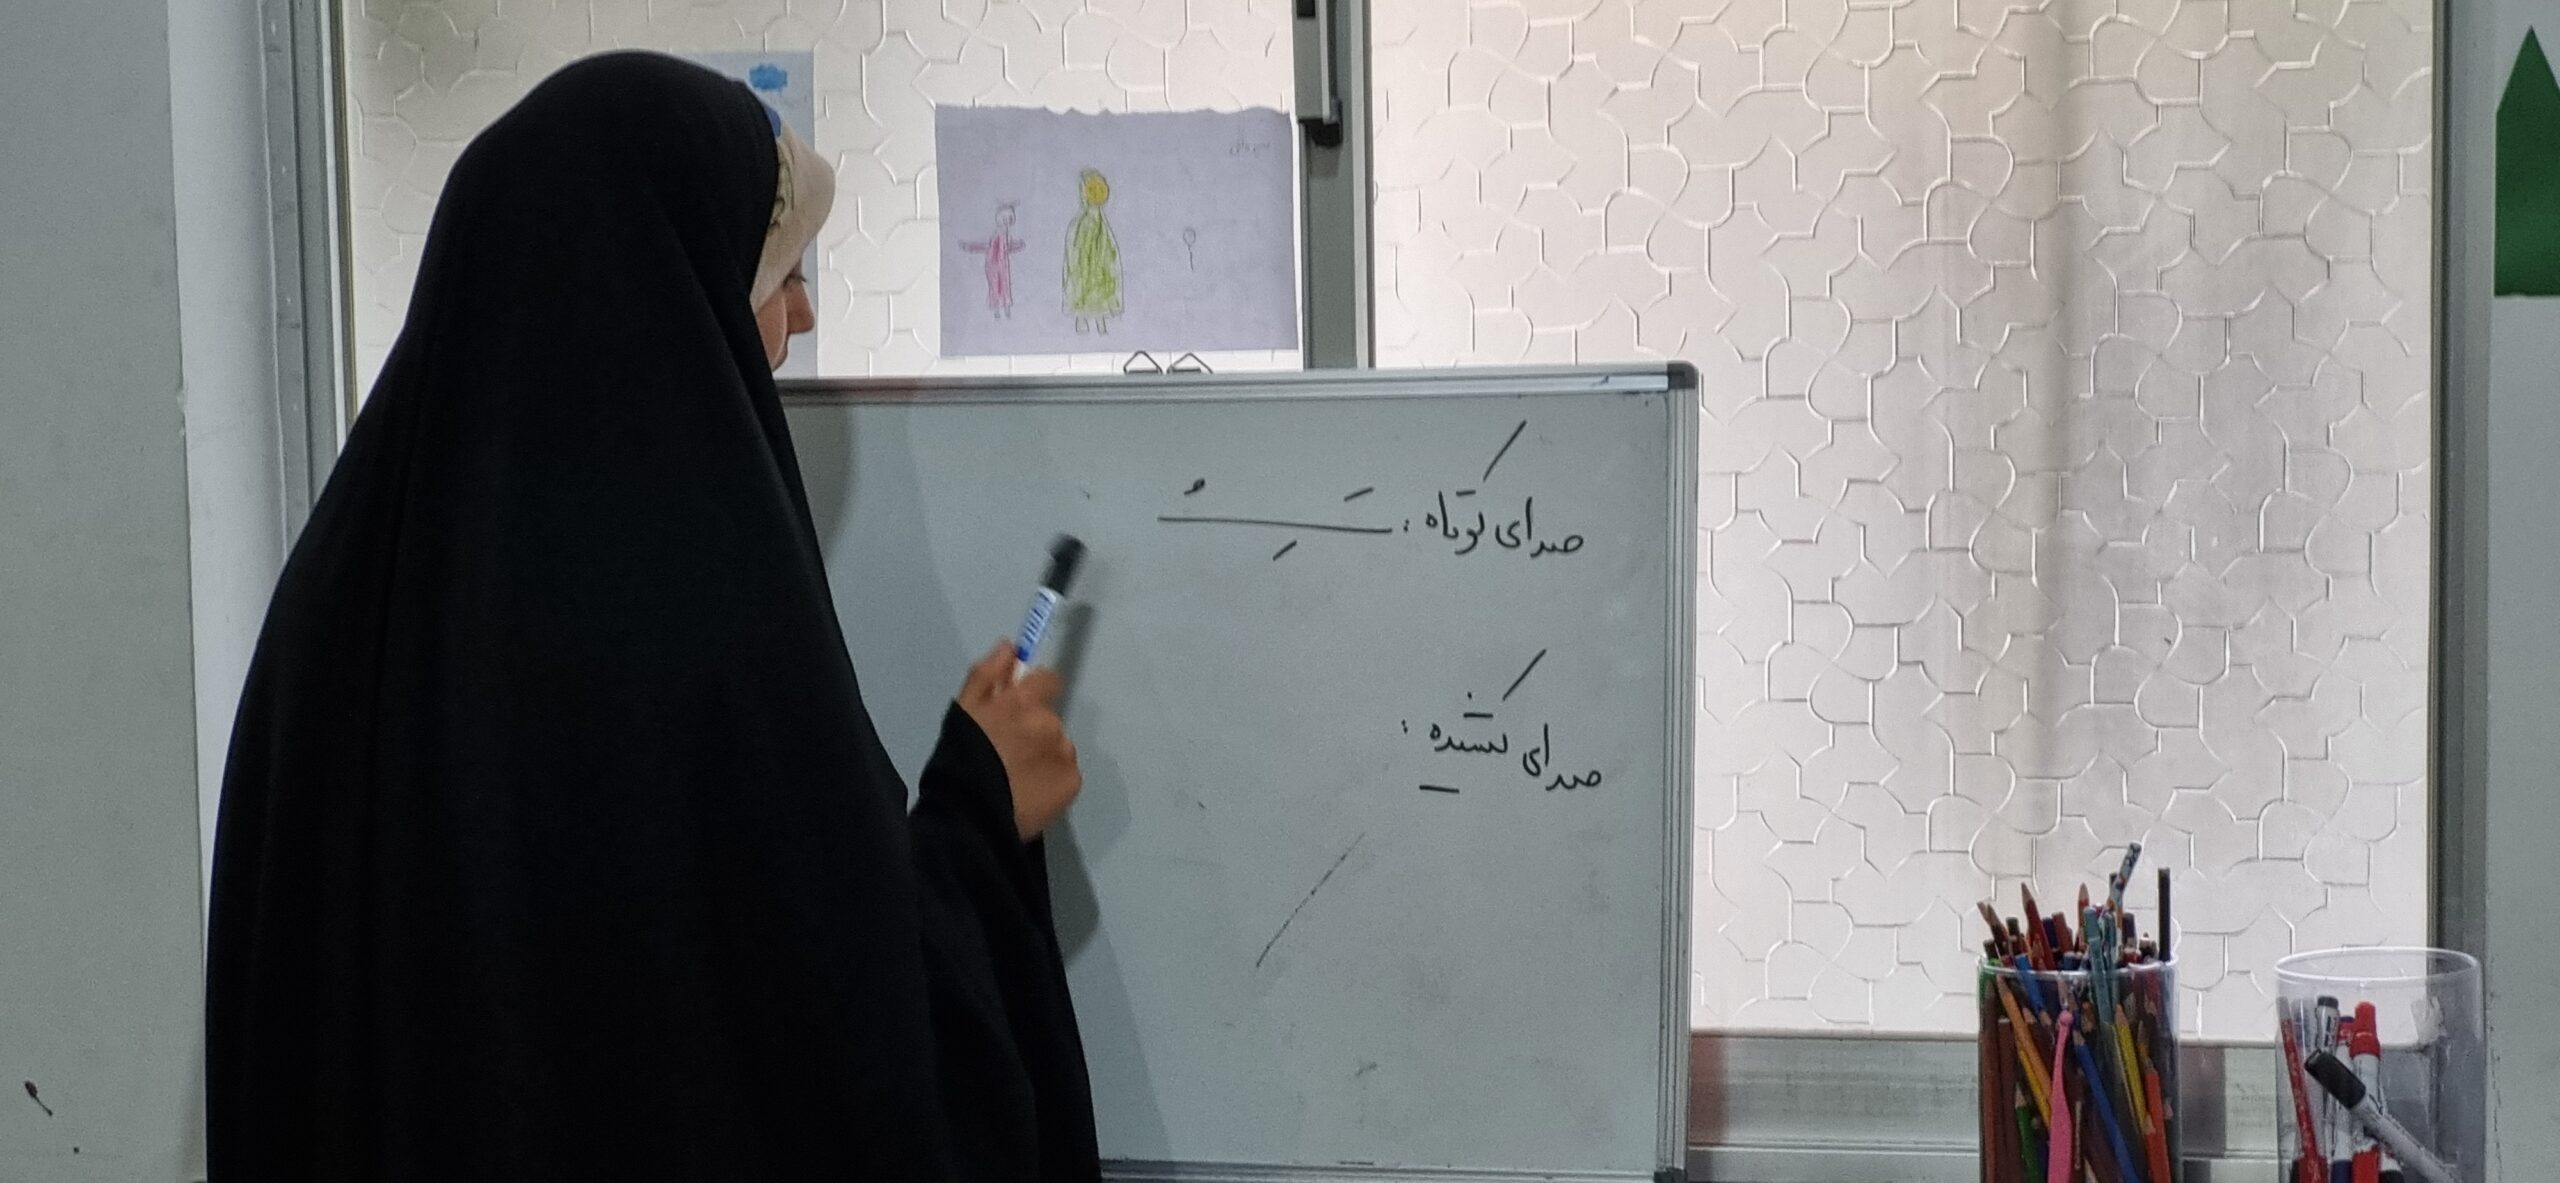 صدای کوتاه : ـَـِـُ
صدای کشیده :